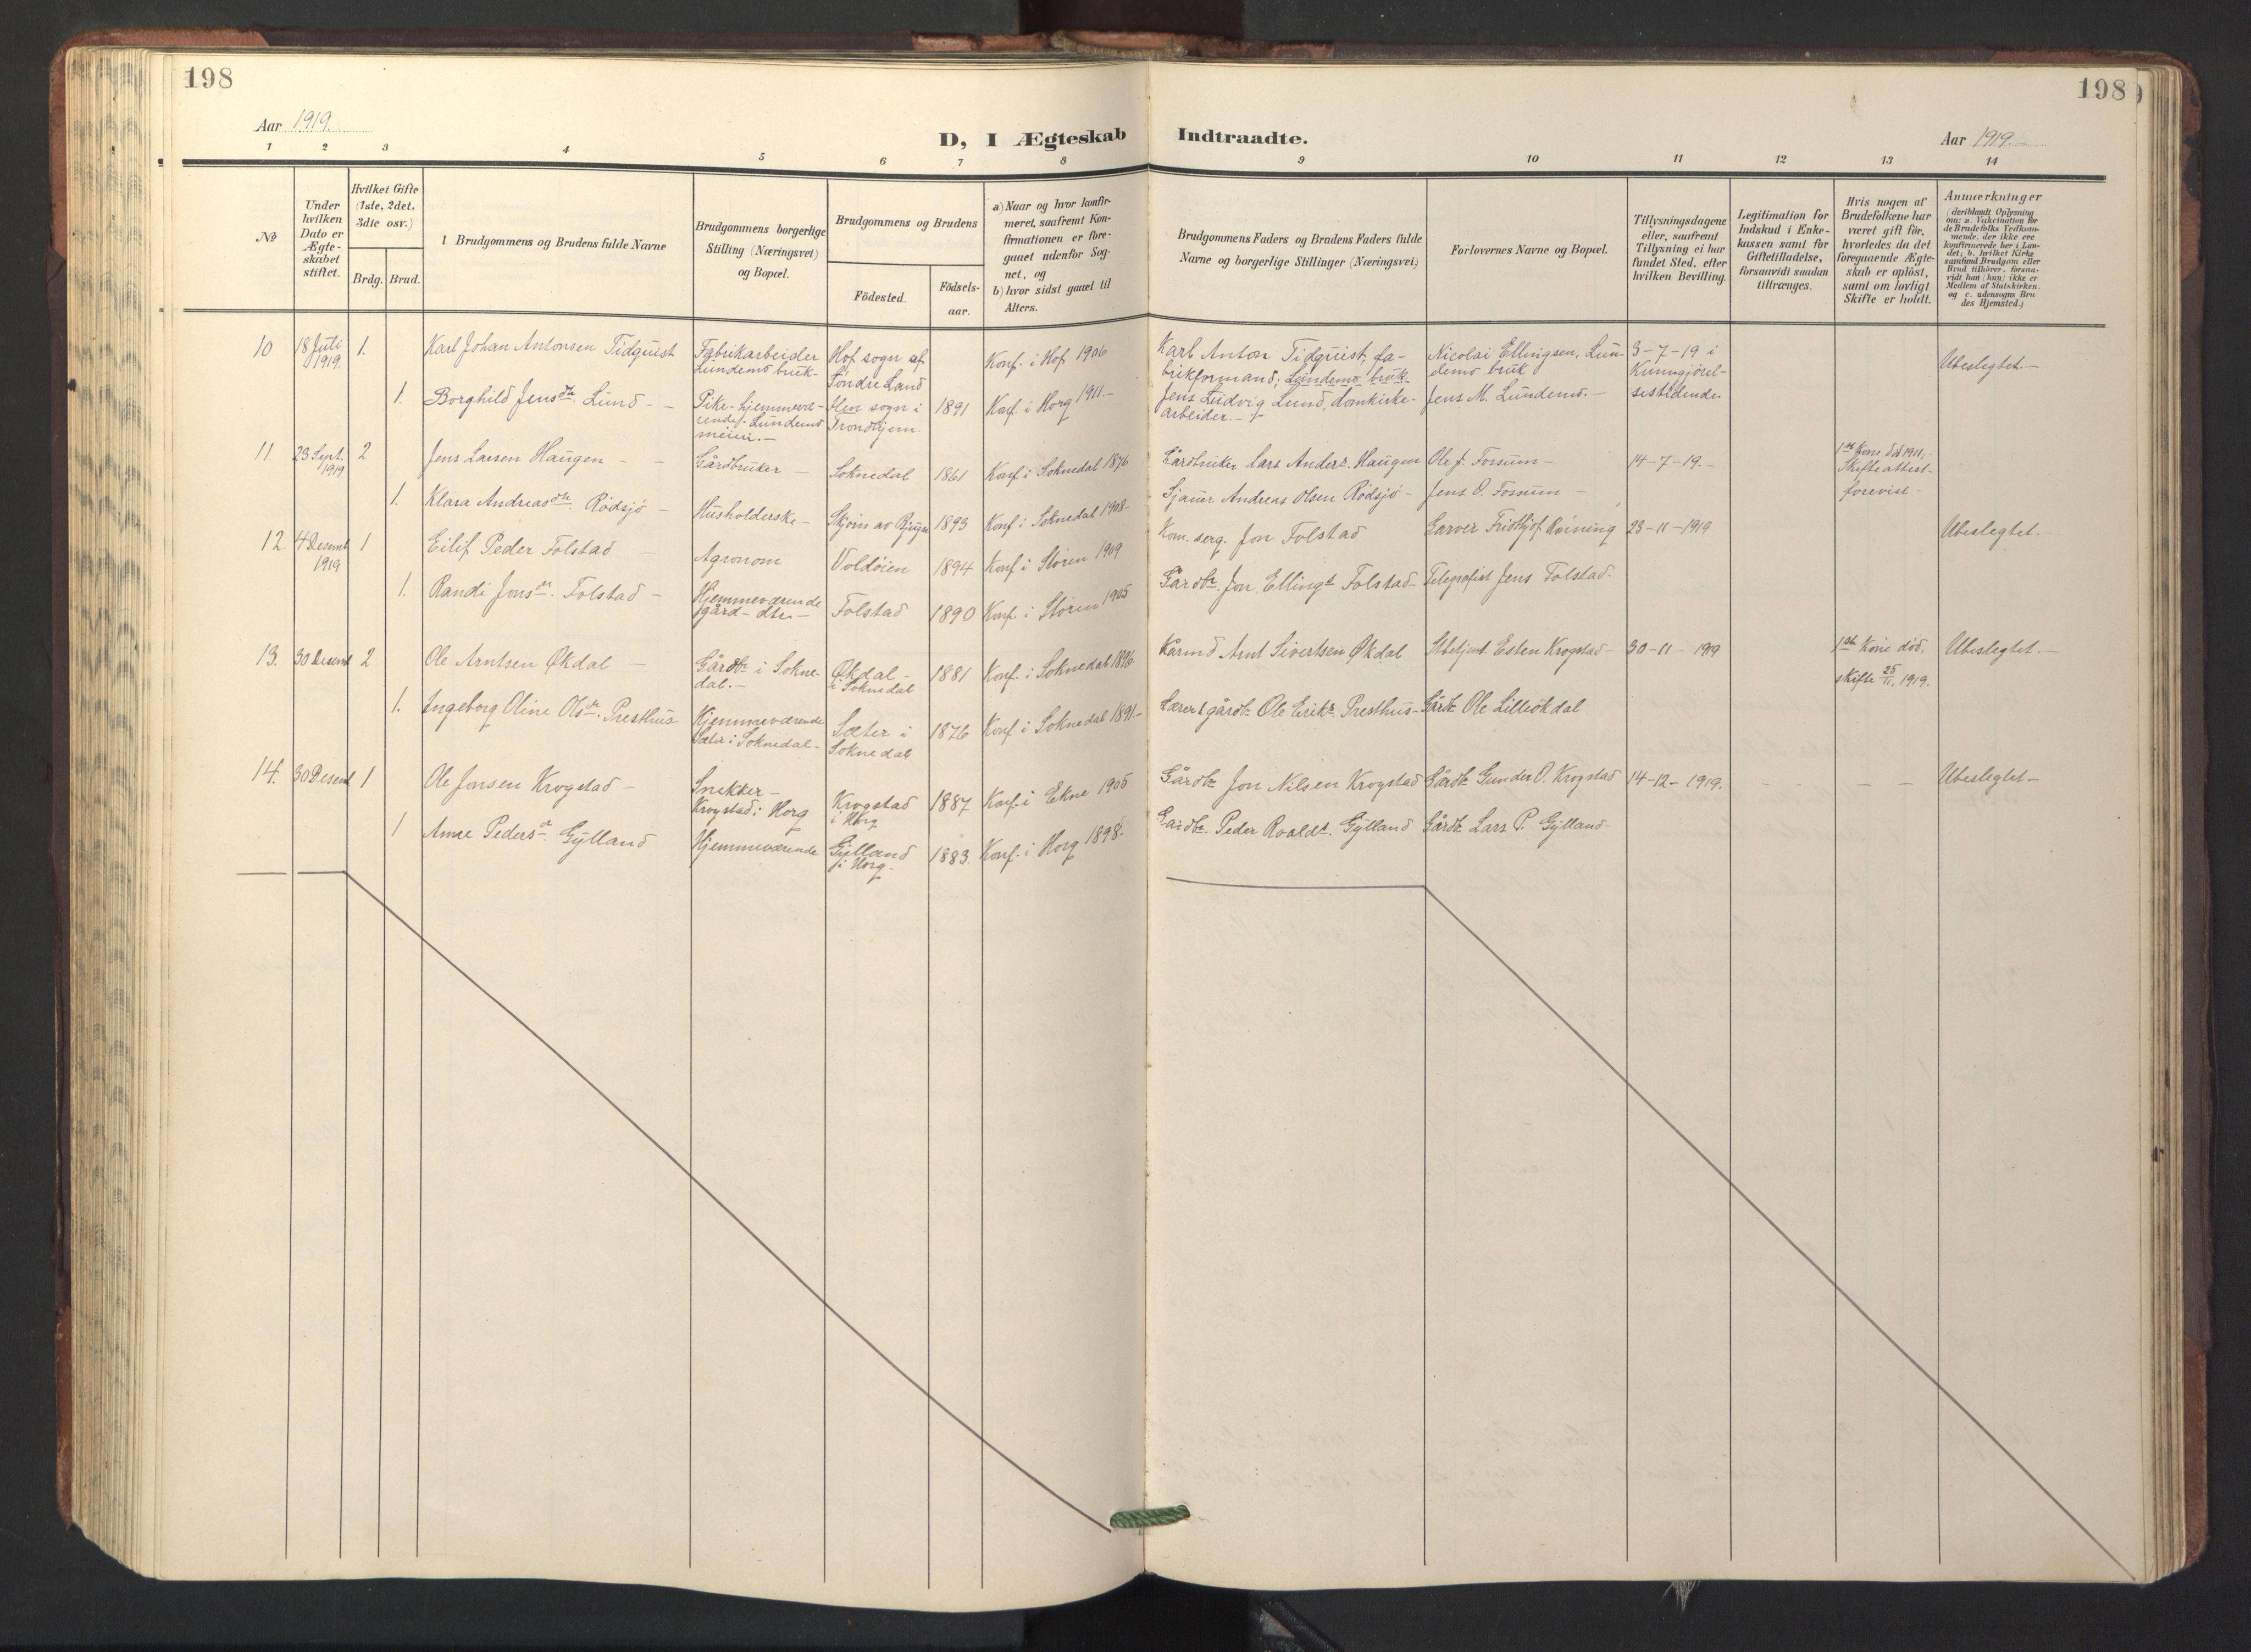 198
198
Aar 1919.
D, I Ægteskab Indtraadte.
Aar 1919.
1 2 3 4 5 6 7 8 9 10 11 12 13 14
№
Under
hvilken
Dato er
Ægte-
skabet
stiftet.
Hvilket Gifte
(1ste, 2det.
3die osv.)
Brdg. Brud.
Brudgommens og Brudens fulde Navne
Brudgommens borgerlige
Stilling (Næringsvei)
og Bopæl.
Brudgommens og Brudens
Födested.
Födsels-
aar.
a) Naar og hvor konfir-
meret, saafremt Kon-
firmationen er fore-
gaaet udenfor Sog-
net, og
b) hvor sidst gaaet til
Alters.
Brudgommens Faders og Brudens Faders fulde
Navne og borgerlige Stillinger (Næringsvei)
Forlovernes Navne og Bopæl.
Tillysningsdagene
eller, saafremt
Tillysning ei har
fundet Sted, efter
hvilken Bevilling.
Legitimation for
Indskud i Enke-
kassen samt for
Giftetilladelse,
forsaavidt saadan
tiltrænges.
Hvis nogen af
Brudefolkene har
været gift för,
hvorledes da det
foregaaende Ægte-
skab er oplöst,
samt om lovligt
Skifte er holdt.
Anmærkninger
(deriblandt Oplysning
om: a. Vakcination for
de Brudefolks Vedkom-
mende, der ikke ere
konfirmerede her i Lan-
det; b. hvilket Kirke
samfund Brudgom eller
Brud tilhörer, forsaa-
vidt han (hun) ikke er
Medlem af Statskirken.
og c. udensogns Bru
des Hjemsted.)
10 18 Juli 1919. 1. Karl Johan Antonsen Tidquist
Fabrikarbeider
Lundemo bruk-
Hof sogn af
Söndre Land
Konf. i Hof 1906
Karl Anton Tidquist, fa-
brikformand, Lundemo bruk
Nicolai Ellingsen, Lun-
demo bruk
3-7-19 i
Kunngjörel-
sestidende
Ubeslegtet.-
1. Borghild Jensdtr. Lund -
Pike- hjemmevæ-
rende, Lundemo
meieri.-
Ilen sogn i
Trondhjem.
1891 Konf. i Horg 1911.-
Jens Ludvig Lund, domkirke-
arbeider.-
Jens M. Lundemo.-
11 23 Sept. 1919 2 Jens Larsen Haugen - -
Gårdbruker - Soknedal 1861 Konf. i Soknedal 1876
Gårdbruker Lars Anders. Haugen Ole J. Forsum- 14-7-19.-
1ste kone död 1911;
Skifteattest
forevist-
1. Klara Andreasdtr. Rödsjö -
Husholderske - Skjörn av Bjugn 1893 Konf. i Soknedal 1908-
Sjauer Andreas Olsen Rödsjö - Jens O. Forsum -
12. 4 Desemb 1919 1 Eilif Peder Folstad
Agronom Voldöien 1894 Konf i Stören 1909
Kom. serg. Jon Folstad Garver Fridthjof Röining 23-11-1919 Ubeslegtet.-
1. Randi Jonsdtr. Folstad -
Hjemmeværende
gård-dtr.-
Folstad 1890 Konf. i Stören 1905
Gårdbr. Jon Ellings. Folstad- Telegrafist Jens Folstad.
13. 30 Desemb 2 Ole Arntsen Økdal -
Gårdbr. i Sokne-
dal.-
Økdal-
i Soknedal
1881 Konf. i Soknedal 1896.
Kårmd Arnt Sivertsen Økdal Stbetjent Esten Krogstad- 30-11-1919
1ste Kone död,
skifte 25/11. 1919.
Ubeslegtet.-
1. Ingeborg Oline Olsdtr. Presthus
Hjemmeværende
Sæter i Soknedal-
Sæter i
Soknedal
1876 Konf i Soknedal 1891.-
Lærer & gårdbr. Ole Eriks. Presthus- Gårdbr. Ole Lilleökdal
14. 30 Desemb 1 Ole Jonsen Krogstad -
Snekker-
Krogstad i Horg
Krogstad
i Horg
1887 Konf. i Ekne 1905
Gårdbr. Jon Nilsen Krogstad Gårdbr. Gunder O. Krogstad 14-12-1919. - - - Ubeslegtet-
1 Anne Pedersd. Gylland
Hjemmeværende
Gylland
i Horg-
1883. Konf. i Horg 1898.-
Gardbr. Peder Roalds. Gylland Gårdbr. Lars P. Gylland-